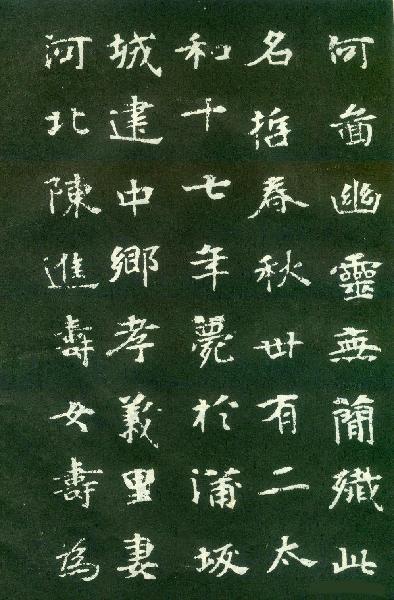 何啚幽靈無簡殱此
名哲春秋卅有二太
和十七年薨於蒲坂
城建中鄉孝義里妻
河北陳進壽女壽為